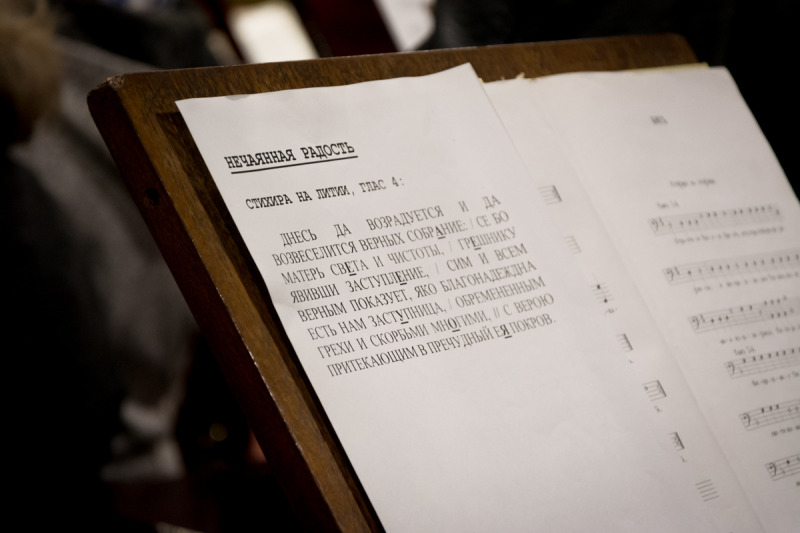 НЕЧАЯННАЯ РАДОСТЬ
СТИХИРА НА ЛИТИИ, ГЛАС 4:
ДНЕСЬ ДА ВОЗРАДУЕТСЯ И ДА
ВОЗВЕСЕЛИТСЯ ВЕРНЫХ СОБРАНИЕ: / СЕ БО
МАТЕРЬ СВЕТА И ЧИСТОТЫ, / ГРЕШНИКУ
ЯВИВШИ ЗАСТУПЛЕНИЕ, / СИМ И ВСЕМ
ВЕРНЫМ ПОКАЗУЕТ, ЯКО БЛАГОНАДЕЖДНА
ЕСТЬ НАМ ЗАСТУПНИЦА, / ОБРЕМЕНЕННЫМ
ГРЕХИ И СКОРБЬМИ МНОГИМИ, // С ВЕРОЮ
ПРИТЕКАЮЩИМ В ПРЕЧУДНЫЙ ЕЯ ПОКРОВ.